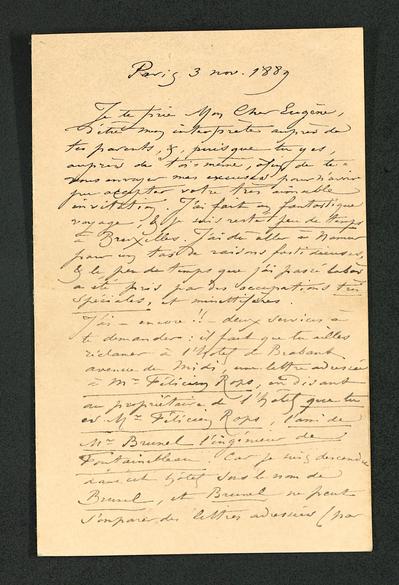 Paris 3 nov. 1889
Je te prie Mon Cher Eugène,
d'être mon interprète auprès de
tes parents, &, puisque tu y es,
auprès de toi-même, afin de te
vous envoyer mes excuses pour n'avoir
pu accepter votre très aimable
invitation. J'ai fait un fantastique
voyage, & je suis resté peu de temps
à Bruxelles. J'ai dû aller à Namur
pour un tas de raisons fastidieuses,
& le peu de temps que j'ai passé
a été pris par des occupations très
spéciales, et
J'ai - encore !! deux services à
te demander : il faut que tu ailles
réclamer à l'hôtel de Brabant
avenue du Midi, une lettre adressée
à Mr Félicien Rops, en disant
au propriétaire de l'hôtel que tu
es Mr Félicien Rops, l'ami de
Mr Brunel l'ingénieur de
Fontainebleau. Car je suis descendu
dans cet hôtel sous le nom de
Brunel, et Brunel ne peut
s'emparer des lettres adressées (par